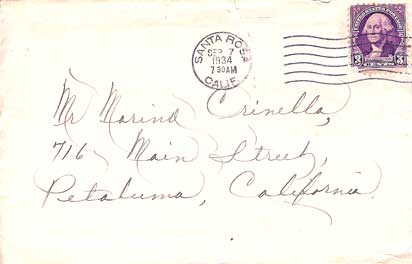 SANTA ROSA
SEP 7
1934
7 30AM
CALIF.
3 3
Mr Marino Crinella,
716 Main Street,
Petaluma, California.